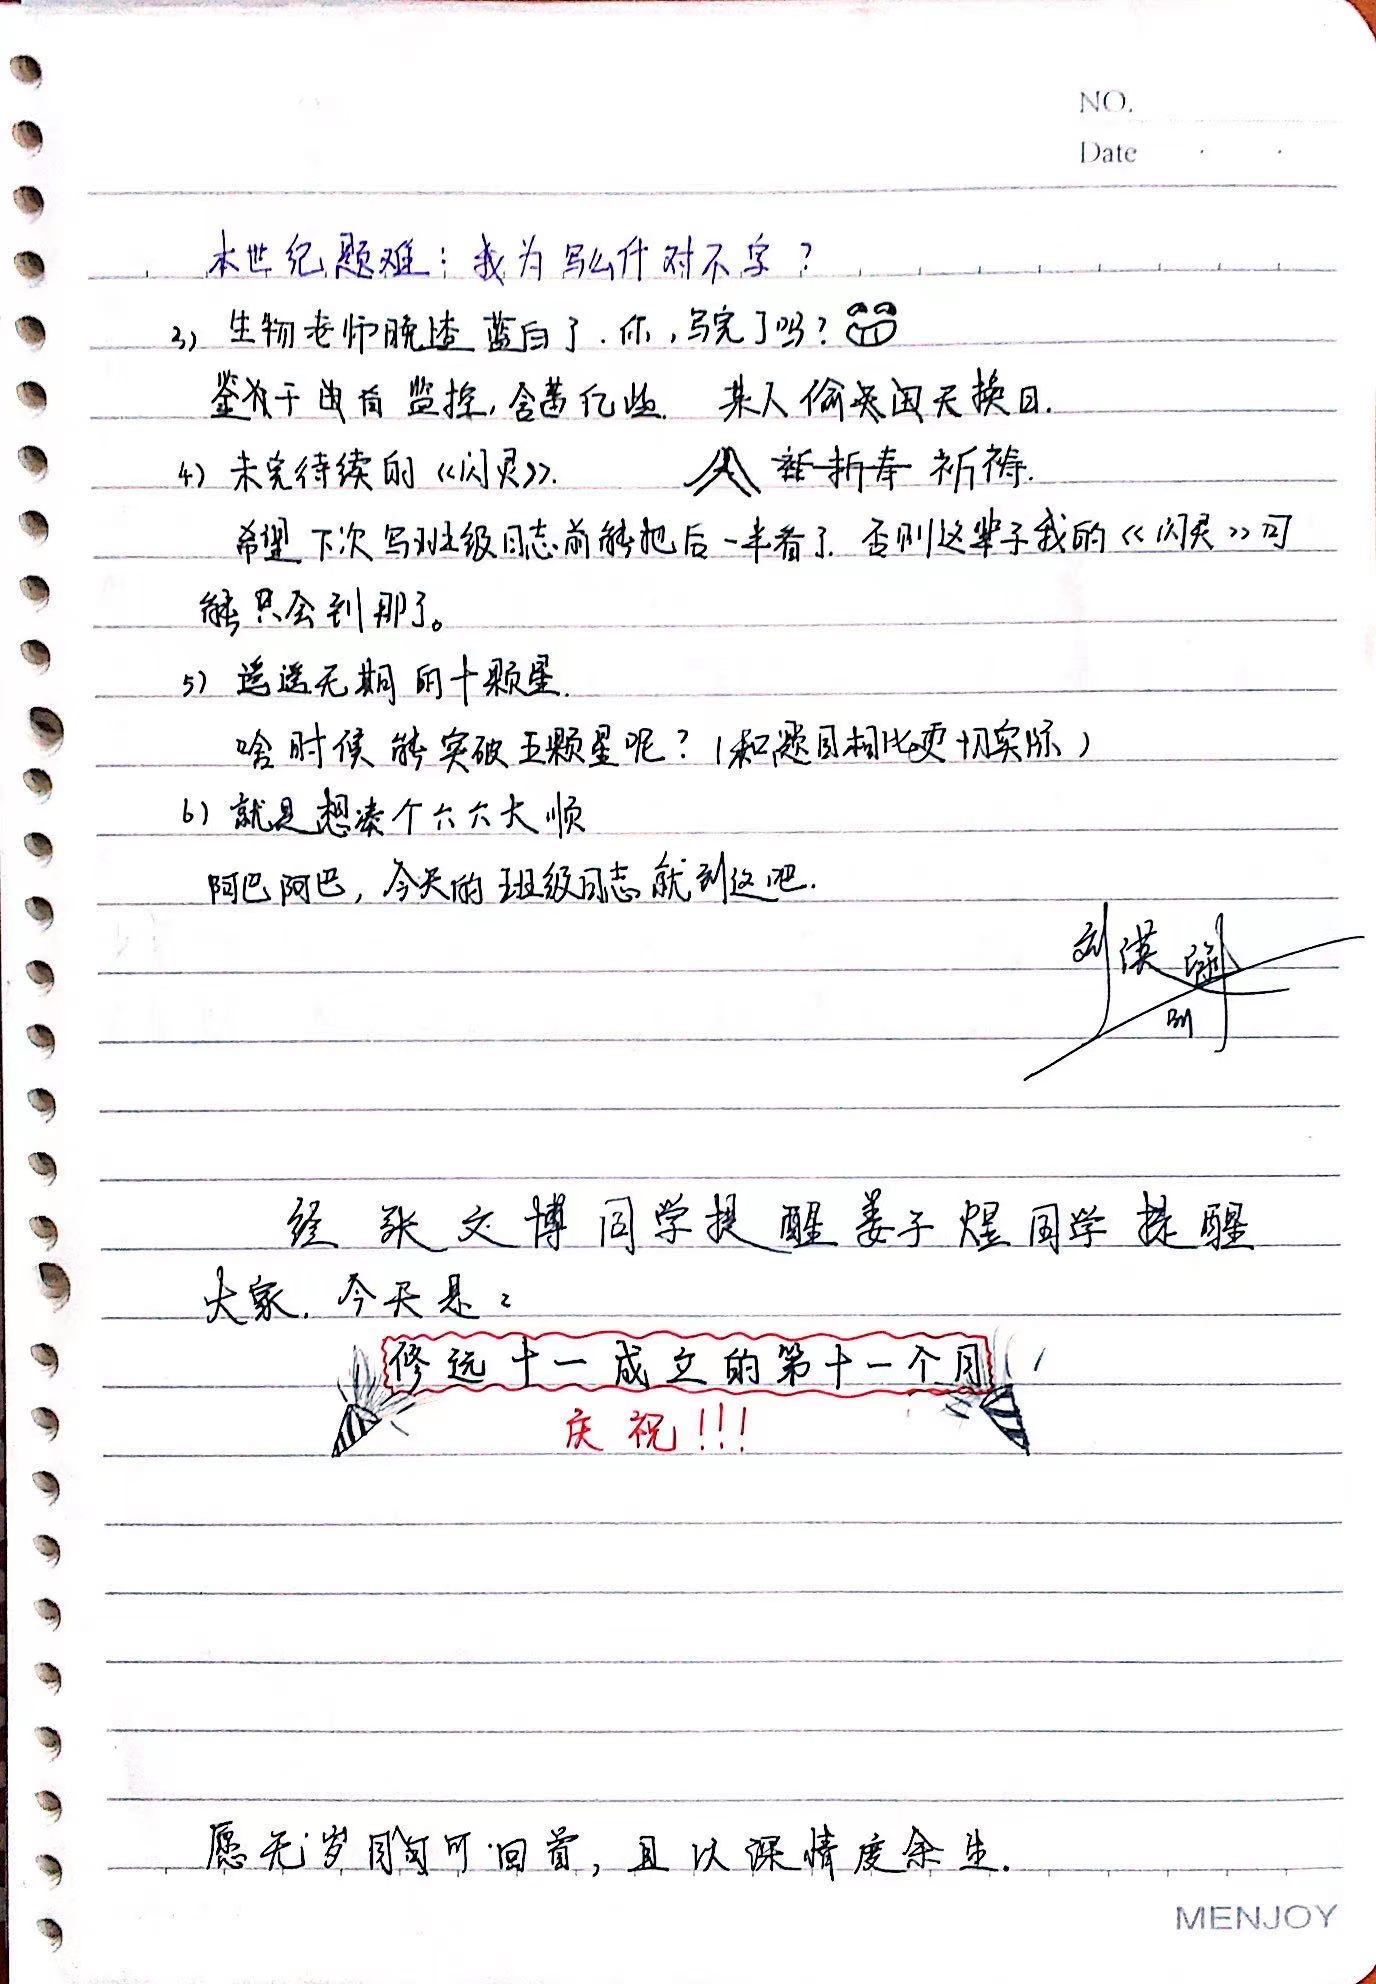 NO.
Date
本世纪题难：我为写么什对不字？
3) 生物老师晚查蓝白了.你,写完了吗?
鉴于 监控, 含蓄亿些. 某人偷 天换日.
4) 未完待续的《闪灵》. 祈祷.
希望下次写班级日志前能把后一半看了.否则这辈子我的《闪灵》可
能只会到那了。
5) 遥遥无期的十颗星.
啥时候能突破五颗星呢？(和题目相比更切实际)
6) 就是想凑个六六大顺
阿巴阿巴, 今天的班级日志就到这吧.
刘
经张文博同学提醒娄子煜同学提醒
大家.今天是:
修远十一成立的第十一个月
庆祝!!!
愿无岁月可回首, 且以深情度余生.
MENJOY